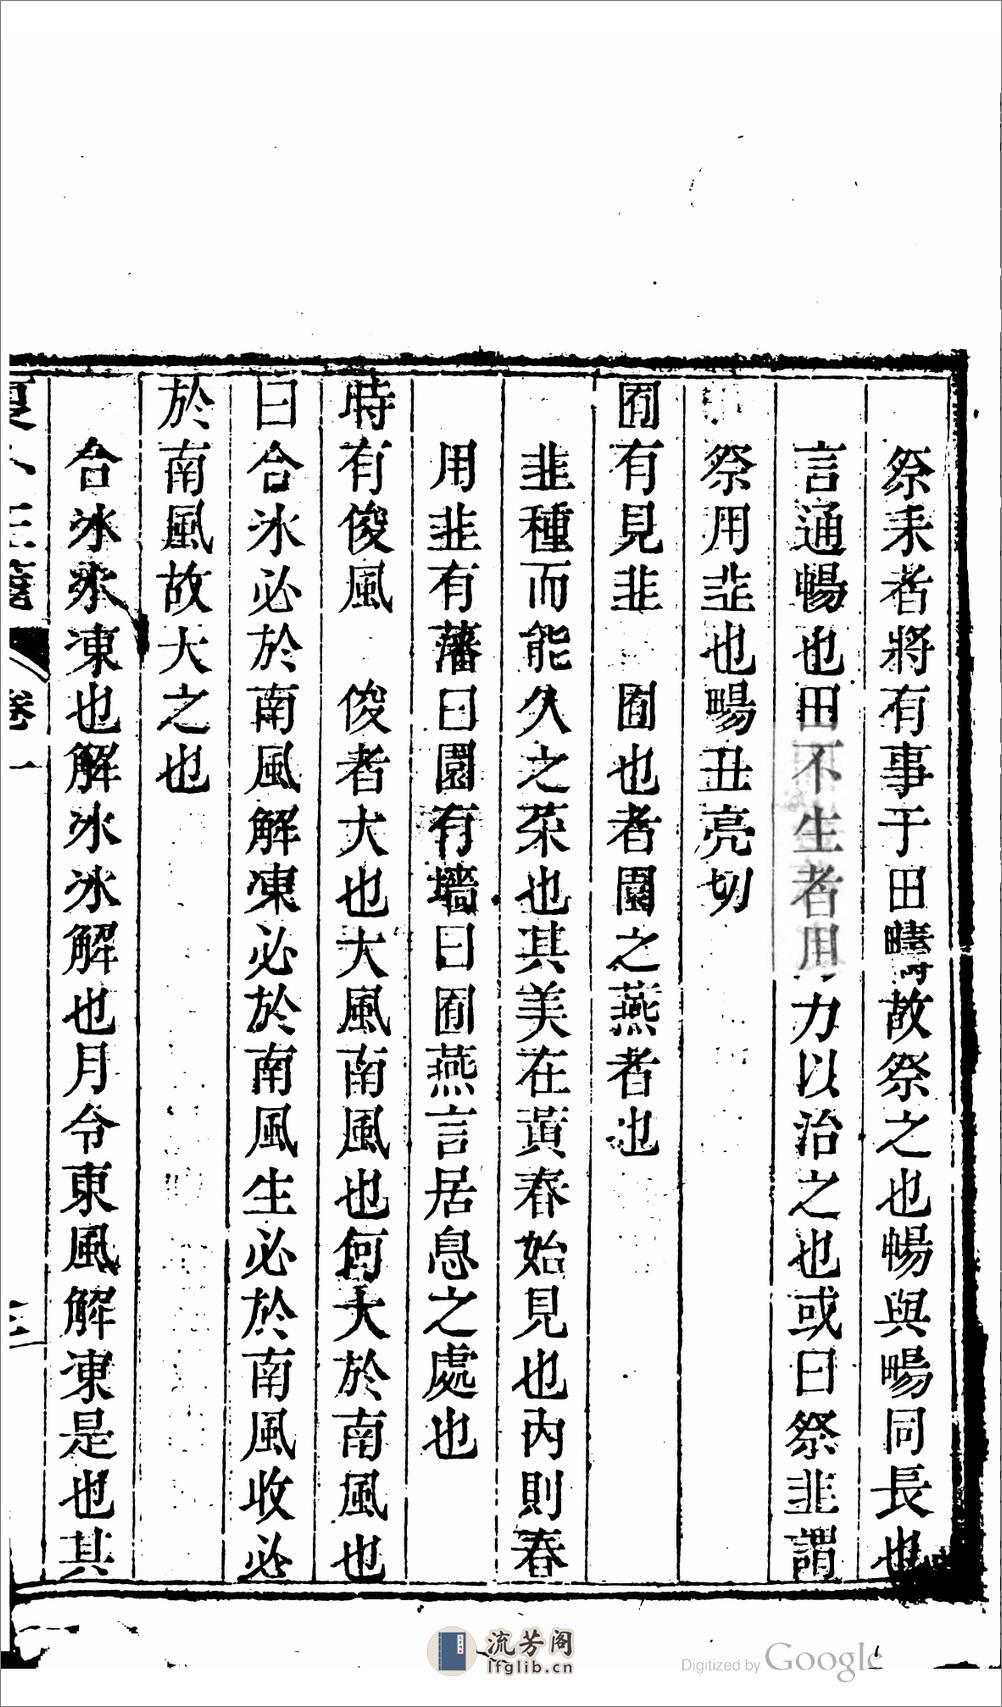 祭耒者將有事于田疇故祭之也暢與畼同長也
言通暢也田不生者用力以治之也或曰祭韭謂
祭用韭也畼丑亮切
囿有見韭　囿也者園之燕者也
韭種而能久之菜也其美在黃春始見也內則春
用韭有藩曰園有墻曰囿燕言居息之處也
時有俊風　俊者大也大風南風也何大於南風也
曰合冰必於南風解凍必於南風生必於南風收必
於南風故大之也
合冰氷凍也解冰冰解也月令東風解凍是也其
卷一
流芳阁
lfglib.cn
Digitized by Google